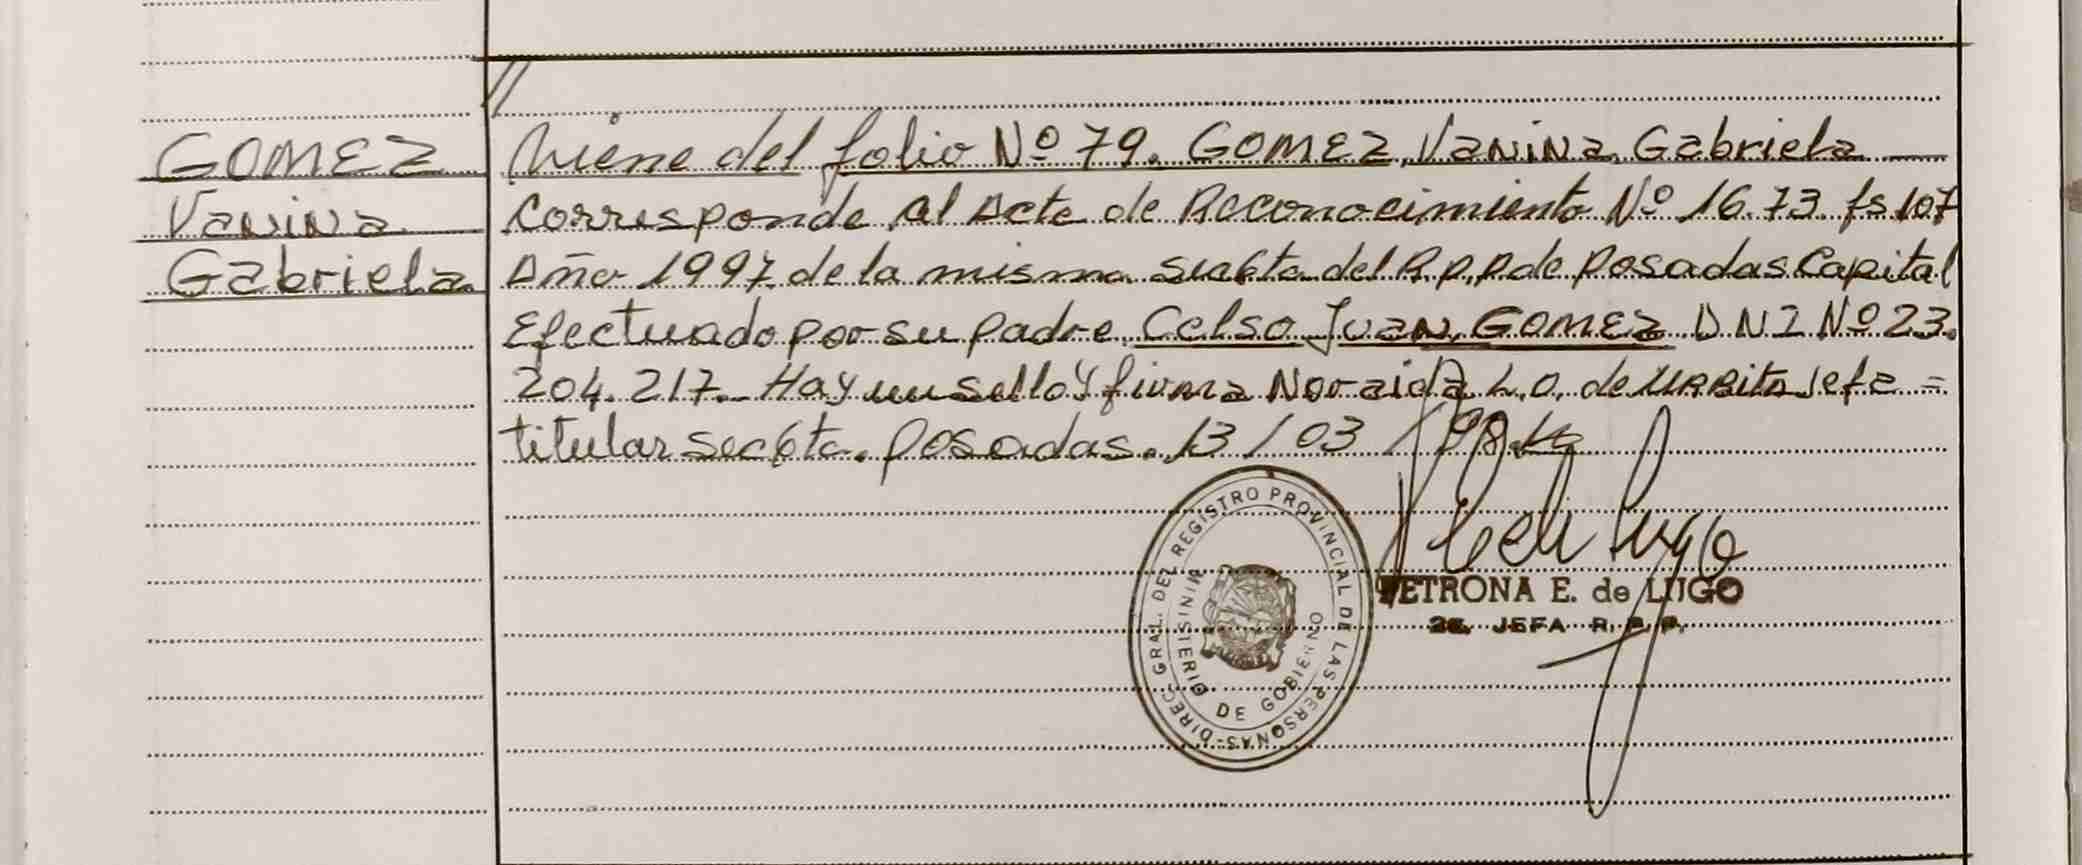 //
GOMEZ
Vanina
Gabriela
Viene del folio Nº 79. GOMEZ, Vanina Gabriela
Corresponde al Acta de Reconocimiento Nº 1673 fs 107
Año 1997 de la misma Sec 6ta del R.P.P de Posadas Capital
Efectuado por su padre Celso Juan GOMEZ DNI Nº 23.
204.217.- Hay un sello y firma Noraida L.O. de URBITA Jefa =
titular Sec 6ta. Posadas. 13 / 03 / 98
DIREC. GRAL. DEL REGISTRO PROVINCIAL DE LAS PERSONAS -
MINISTERIO DE GOBIERNO
PETRONA E. de LUGO
2a. JEFA R. P. P.